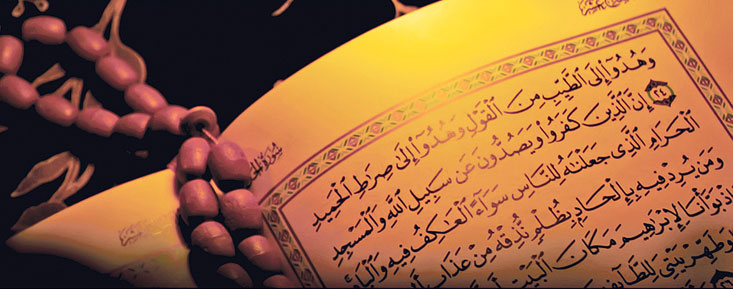 وَهُدُوٓا۟ إِلَى ٱلطَّيِّبِ مِنَ ٱلْقَوْلِ وَهُدُوٓا۟ إِلَىٰ صِرَٰطِ ٱلْحَمِيدِ
٢٤ إِنَّ ٱلَّذِينَ كَفَرُوا۟ وَيَصُدُّونَ عَن سَبِيلِ ٱللَّهِ وَٱلْمَسْجِدِ
ٱلْحَرَامِ ٱلَّذِى جَعَلْنَٰهُ لِلنَّاسِ سَوَآءً ٱلْعَٰكِفُ فِيهِ وَٱلْبَا
وَمَن يُرِدْ فِيهِ بِإِلْحَادٍۭ بِظُلْمٍ نُّذِقْهُ مِنْ عَذَابٍ
إِذْ بَوَّأْنَا لِإِبْرَٰهِيمَ مَكَانَ ٱلْبَيْتِ
وَطَهِّرْ بَيْتِىَ لِلطَّآ